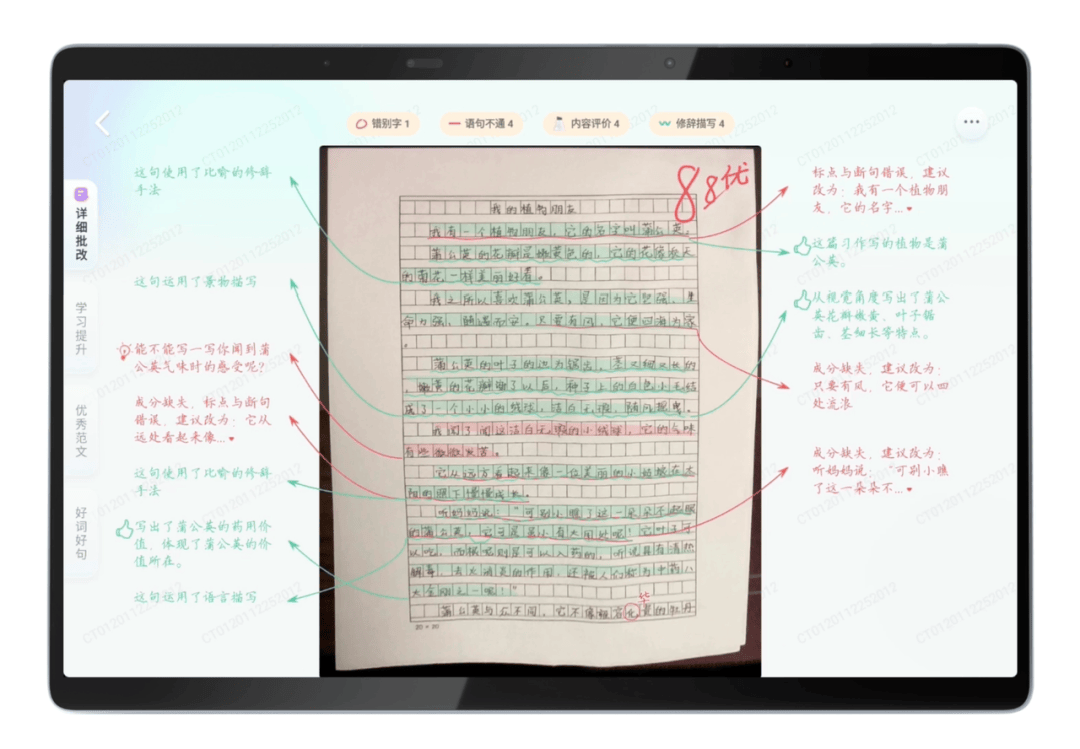 错别字 1
语句不通 4
内容评价 4
修辞描写 4
详细批改
学习提升
优秀范文
好词好句
这句使用了比喻的修辞
手法
这句运用了景物描写
能不能写一写你闻到蒲
公英气味时的感受呢?
成分缺失、标点与断句
错误，建议改为：它从
远处看起来像...
这句使用了比喻的修辞
手法
写出了蒲公英的药用价
值，体现了蒲公英的价
值所在。
这句运用了语言描写
88优
我的植物朋友
我有一个植物朋友，它的名字叫蒲公英。
蒲公英的花瓣是嫩黄色的，它的花像秋天
的菊花一样美丽好看。
我之所以喜欢蒲公英，是因为它坚强，生
命力强，随遇而安。只要有风，它便四海为家
。
蒲公英的叶子的边为锯齿，茎又细又长的
，嫩黄的花瓣谢了以后，种子上的白色小毛结
成了一个小小的绒球，洁白无瑕，随风摇曳。
我闻了闻这洁白无瑕的小绒球，它的气味
有些微微发苦。
它从远方看起来像一位美丽的小姑娘在太
阳的照下慢慢成长。
听妈妈说：“可别小瞧了这一朵朵不起眼
的蒲公英，它可是虽小有大用处呢！它叶子可
以吃，而根呢则是可以入药的，听说具有清热
解毒，去火消炎的作用，还被人们称为中药八
大金刚之一呢！”
蒲公英与众不同，它不像雍容华贵的牡丹
华
20 × 20
标点与断句错误，建议
改为：我有一个植物朋
友，它的名字...
这篇习作写的植物是蒲
公英。
从视觉角度写出了蒲公
英花瓣嫩黄、叶子锯
齿、茎细长等特点。
成分缺失，建议改为：
只要有风，它便可以四
处流浪
成分缺失，建议改为：
听妈妈说：“可别小瞧
了这一朵朵不...
CT0120112252012